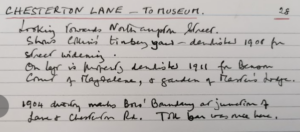 CHESTERTON LANE — TO MUSEUM. 28
Looking towards Northampton Street.
Shows Collins' timber yard — demolished 1908 for
street widening.
On left is property demolished 1911 for Benson
Court of Magdalene, & garden of Master's Lodge.
1904 drawing marks Boro' Boundary at junction of
Lane & Chesterton Rd. Toll bar was once here.